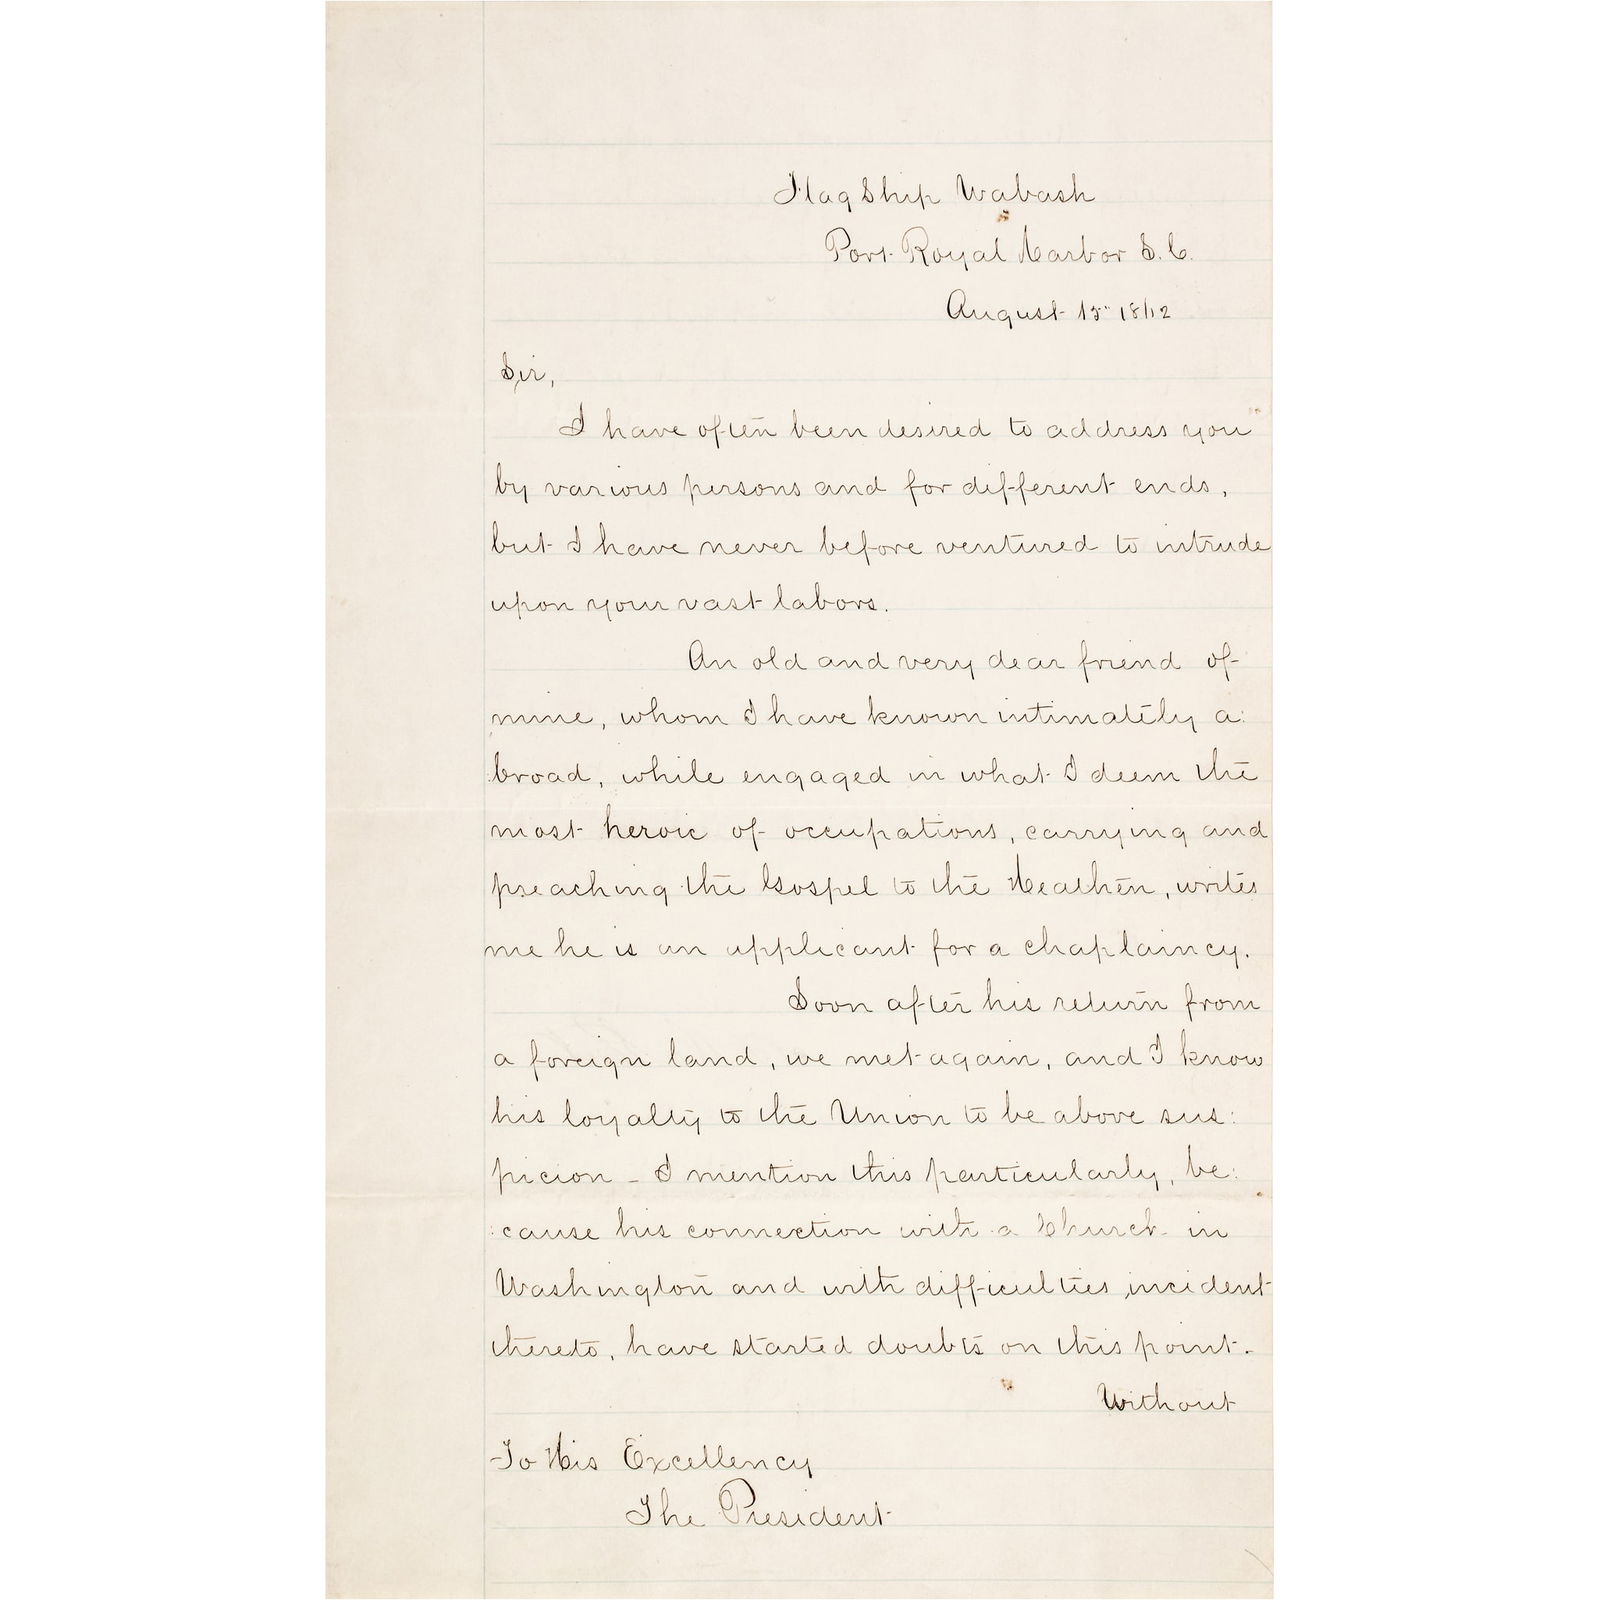 Flag Ship Wabash
Port Royal Harbor S.C.
August 15" 1862
Sir,
I have often been desired to address you
by various persons and for different ends,
but I have never before ventured to intrude
upon your vast labors.
An old and very dear friend of
mine, whom I have known intimately a:
:broad, while engaged in what I deem the
most heroic of occupations, carrying and
preaching the Gospel to the Heathen, writes
me he is an applicant for a chaplaincy.
Soon after his return from
a foreign land, we met again, and I know
his loyalty to the Union to be above sus:
picion - I mention this particularly, be:
:cause his connection with a Church in
Washington and with difficulties incident
thereto, have started doubts on this point.
Without
To His Excellency
The President